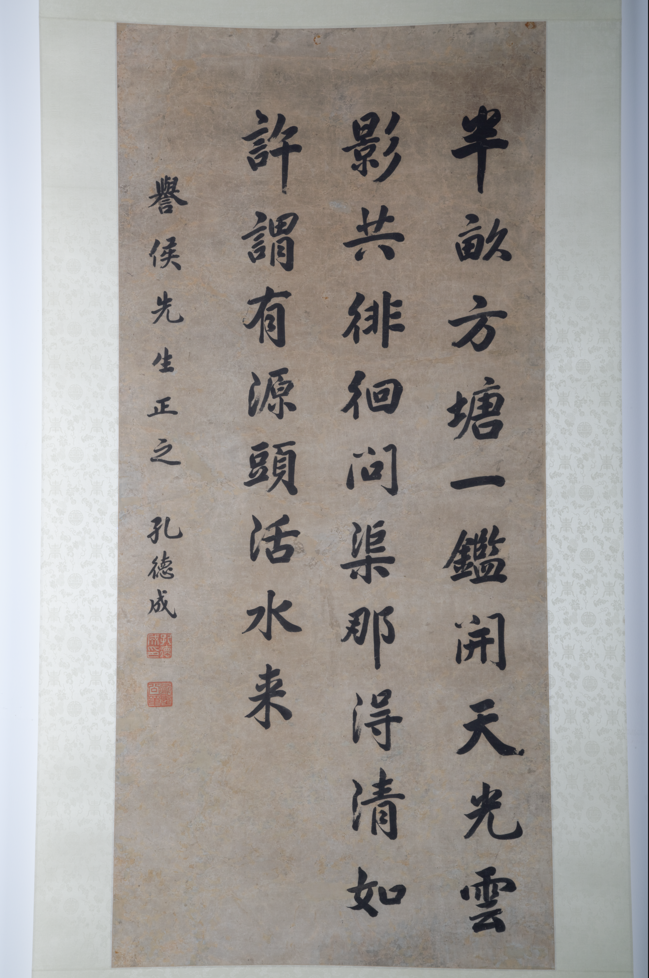 半畝方塘一鑑開天光雲
影共徘徊問渠那得清如
許謂有源頭活水来
譽侯先生正之 孔德成